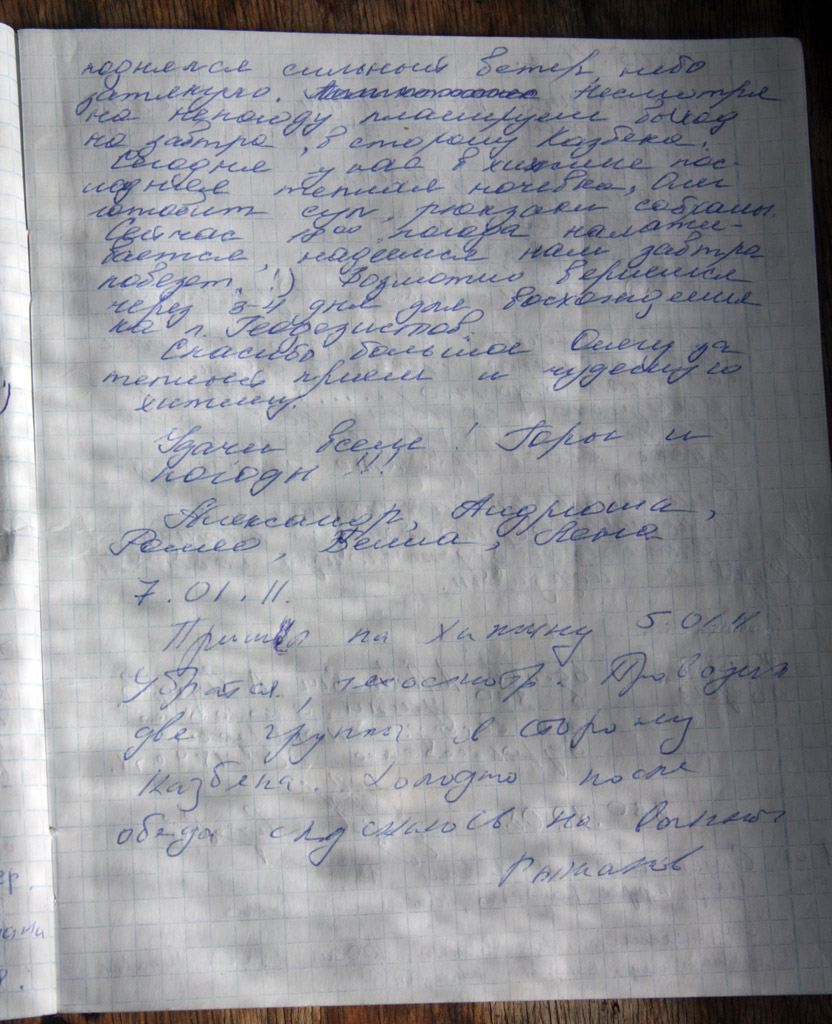 поднялся сильный ветер, небо
затянуло. Несмотря
на непогоду планируем выход
на завтра, в сторону Казбека.
Сегодня у нас в хижине пос-
ледняя теплая ночевка, Оля
готовит суп, рюкзаки собраны.
Сейчас 17⁰⁰ погода налажи-
вается, надеемся нам завтра
повезет. :) Возможно вернемся
через 3-4 дня для восхождения
на п. Геодезистов
Спасибо большое Олегу за
теплый прием и чудесную
хижину.
Удачи всем! Горы и
погоды !!!
Александр, Андрюша,
Лена
7.01.11.
Пришёл на хижину 5.01.11
Убрался, техосмотр. Проводил
две группы в сторону
Казбека. Холодно после
обеда
)
ер.